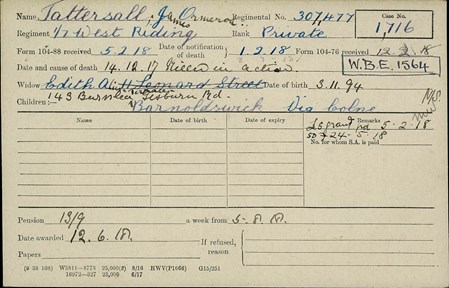 Name Tattersall, Ja James Ormerod Regimental No. 307477 Case No. 1,716
Regiment 1/7 West Riding Rank Private
Form 104-88 received 5.2.18 Date of notification of death 1.2.18 Form 104-76 received 12.3.18
Date and cause of death 14.12.17 Killed in action W.B.E. 1564
Widow Edith A. 4 Leonard Street Date of birth 3.11.94
43 Gisburn Rd.
Children:— Barnoldswick Via Colne
Name Date of birth Date of expiry Remarks
£5 grant pd 5-2-18
24-5-18
No. for whom S.A. is paid
Pension 13/9 a week from
Date awarded 12.6.18. If refused, reason
Papers
W5811—8778 25,000(2) 8/16 HWV(P1066) G15/251
16972—327 25,000 6/17